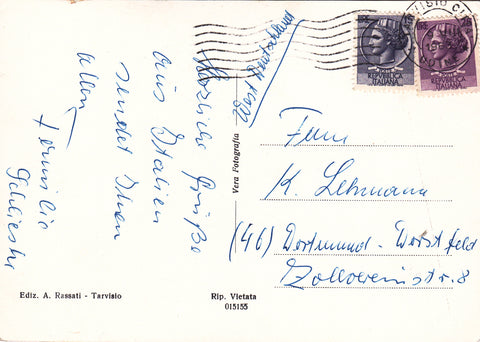 Herzliche Grüße
aus Italien
sendet Ihnen
allen
Familie
Schlieske
West Deutschland
TARVISIO
REPUBBLICA
ITALIANA
REPUBBLICA
ITALIANA
Vera Fotografia
K. Lehmann
(46) Dortmund - Worstfeld
Zollvereinstr. 8
Ediz. A. Rassati - Tarvisio
Rip. Vietata
015155